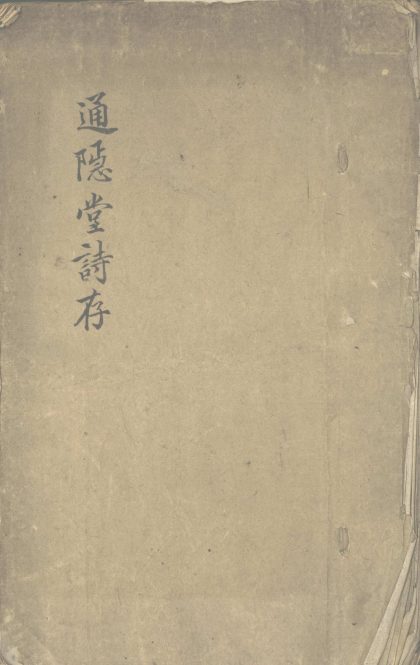 通隐堂詩存